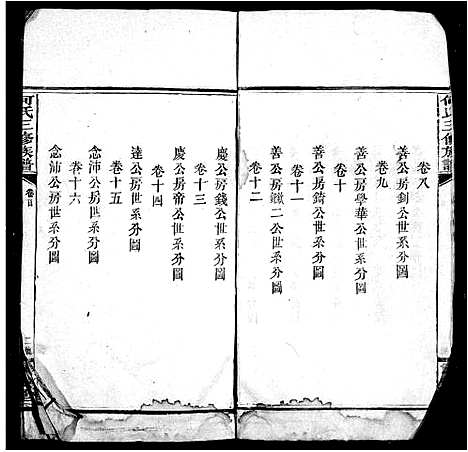 何氏三修族譜
卷八
善公房釗公世系分圖
卷九
善公房學華公世系分圖
卷十
善公房錡公世系分圖
卷十一
善公房鐓二公世系分圖
卷十二
慶公房錢公世系分圖
卷十三
慶公房帝公世系分圖
卷十四
達公房世系分圖
卷十五
念沛公房世系分圖
卷十六
念沛公房世系分圖
何氏三修族譜